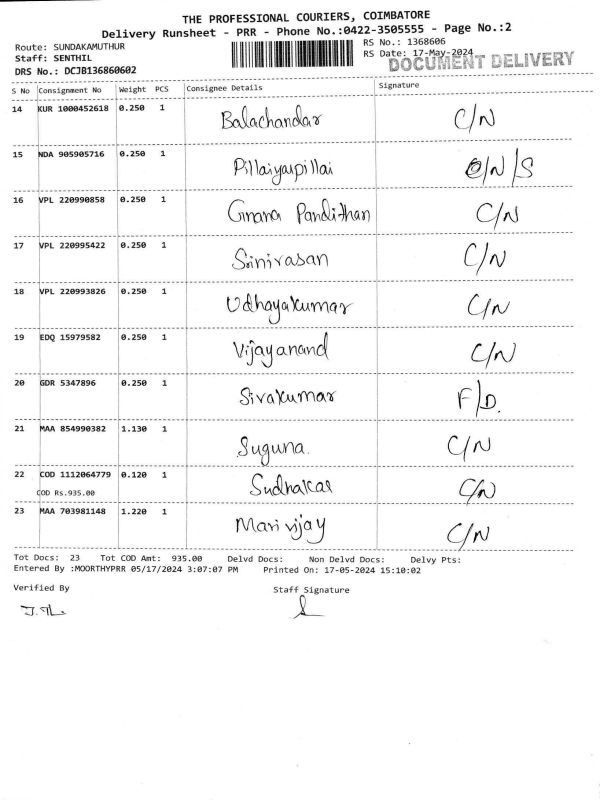 THE PROFESSIONAL COURIERS, COIMBATORE
Delivery Runsheet - PRR - Phone No.:0422-3505555 - Page No.:2
Route: SUNDAKAMUTHUR
RS No.: 1368606
Staff: SENTHIL
RS Date: 17-May-2024
DOCUMENT DELIVERY
DRS No.: DCJB136860602
S No Consignment No Weight PCS Consignee Details Signature
14 KUR 1000452618 0.250 1 Balachandar C/N
15 NDA 905905716 0.250 1 Pillaiyarpillai O/N/S
16 VPL 220990858 0.250 1 Gnana Pandithan C/N
17 VPL 220995422 0.250 1 Srinivasan C/N
18 VPL 220993826 0.250 1 Udhayakumar C/N
19 EDQ 15979582 0.250 1 Vijayanand C/N
20 GDR 5347896 0.250 1 Sivakumar F/D.
21 MAA 854990382 1.130 1 Suguna. C/N
22 COD 1112064779 0.120 1 Sudhakar C/N
COD Rs.935.00
23 MAA 703981148 1.220 1 Marivijay C/N
Tot Docs: 23 Tot COD Amt: 935.00 Delvd Docs: Non Delvd Docs: Delvy Pts:
Entered By :MOORTHYPRR 05/17/2024 3:07:07 PM Printed On: 17-05-2024 15:10:02
Verified By Staff Signature